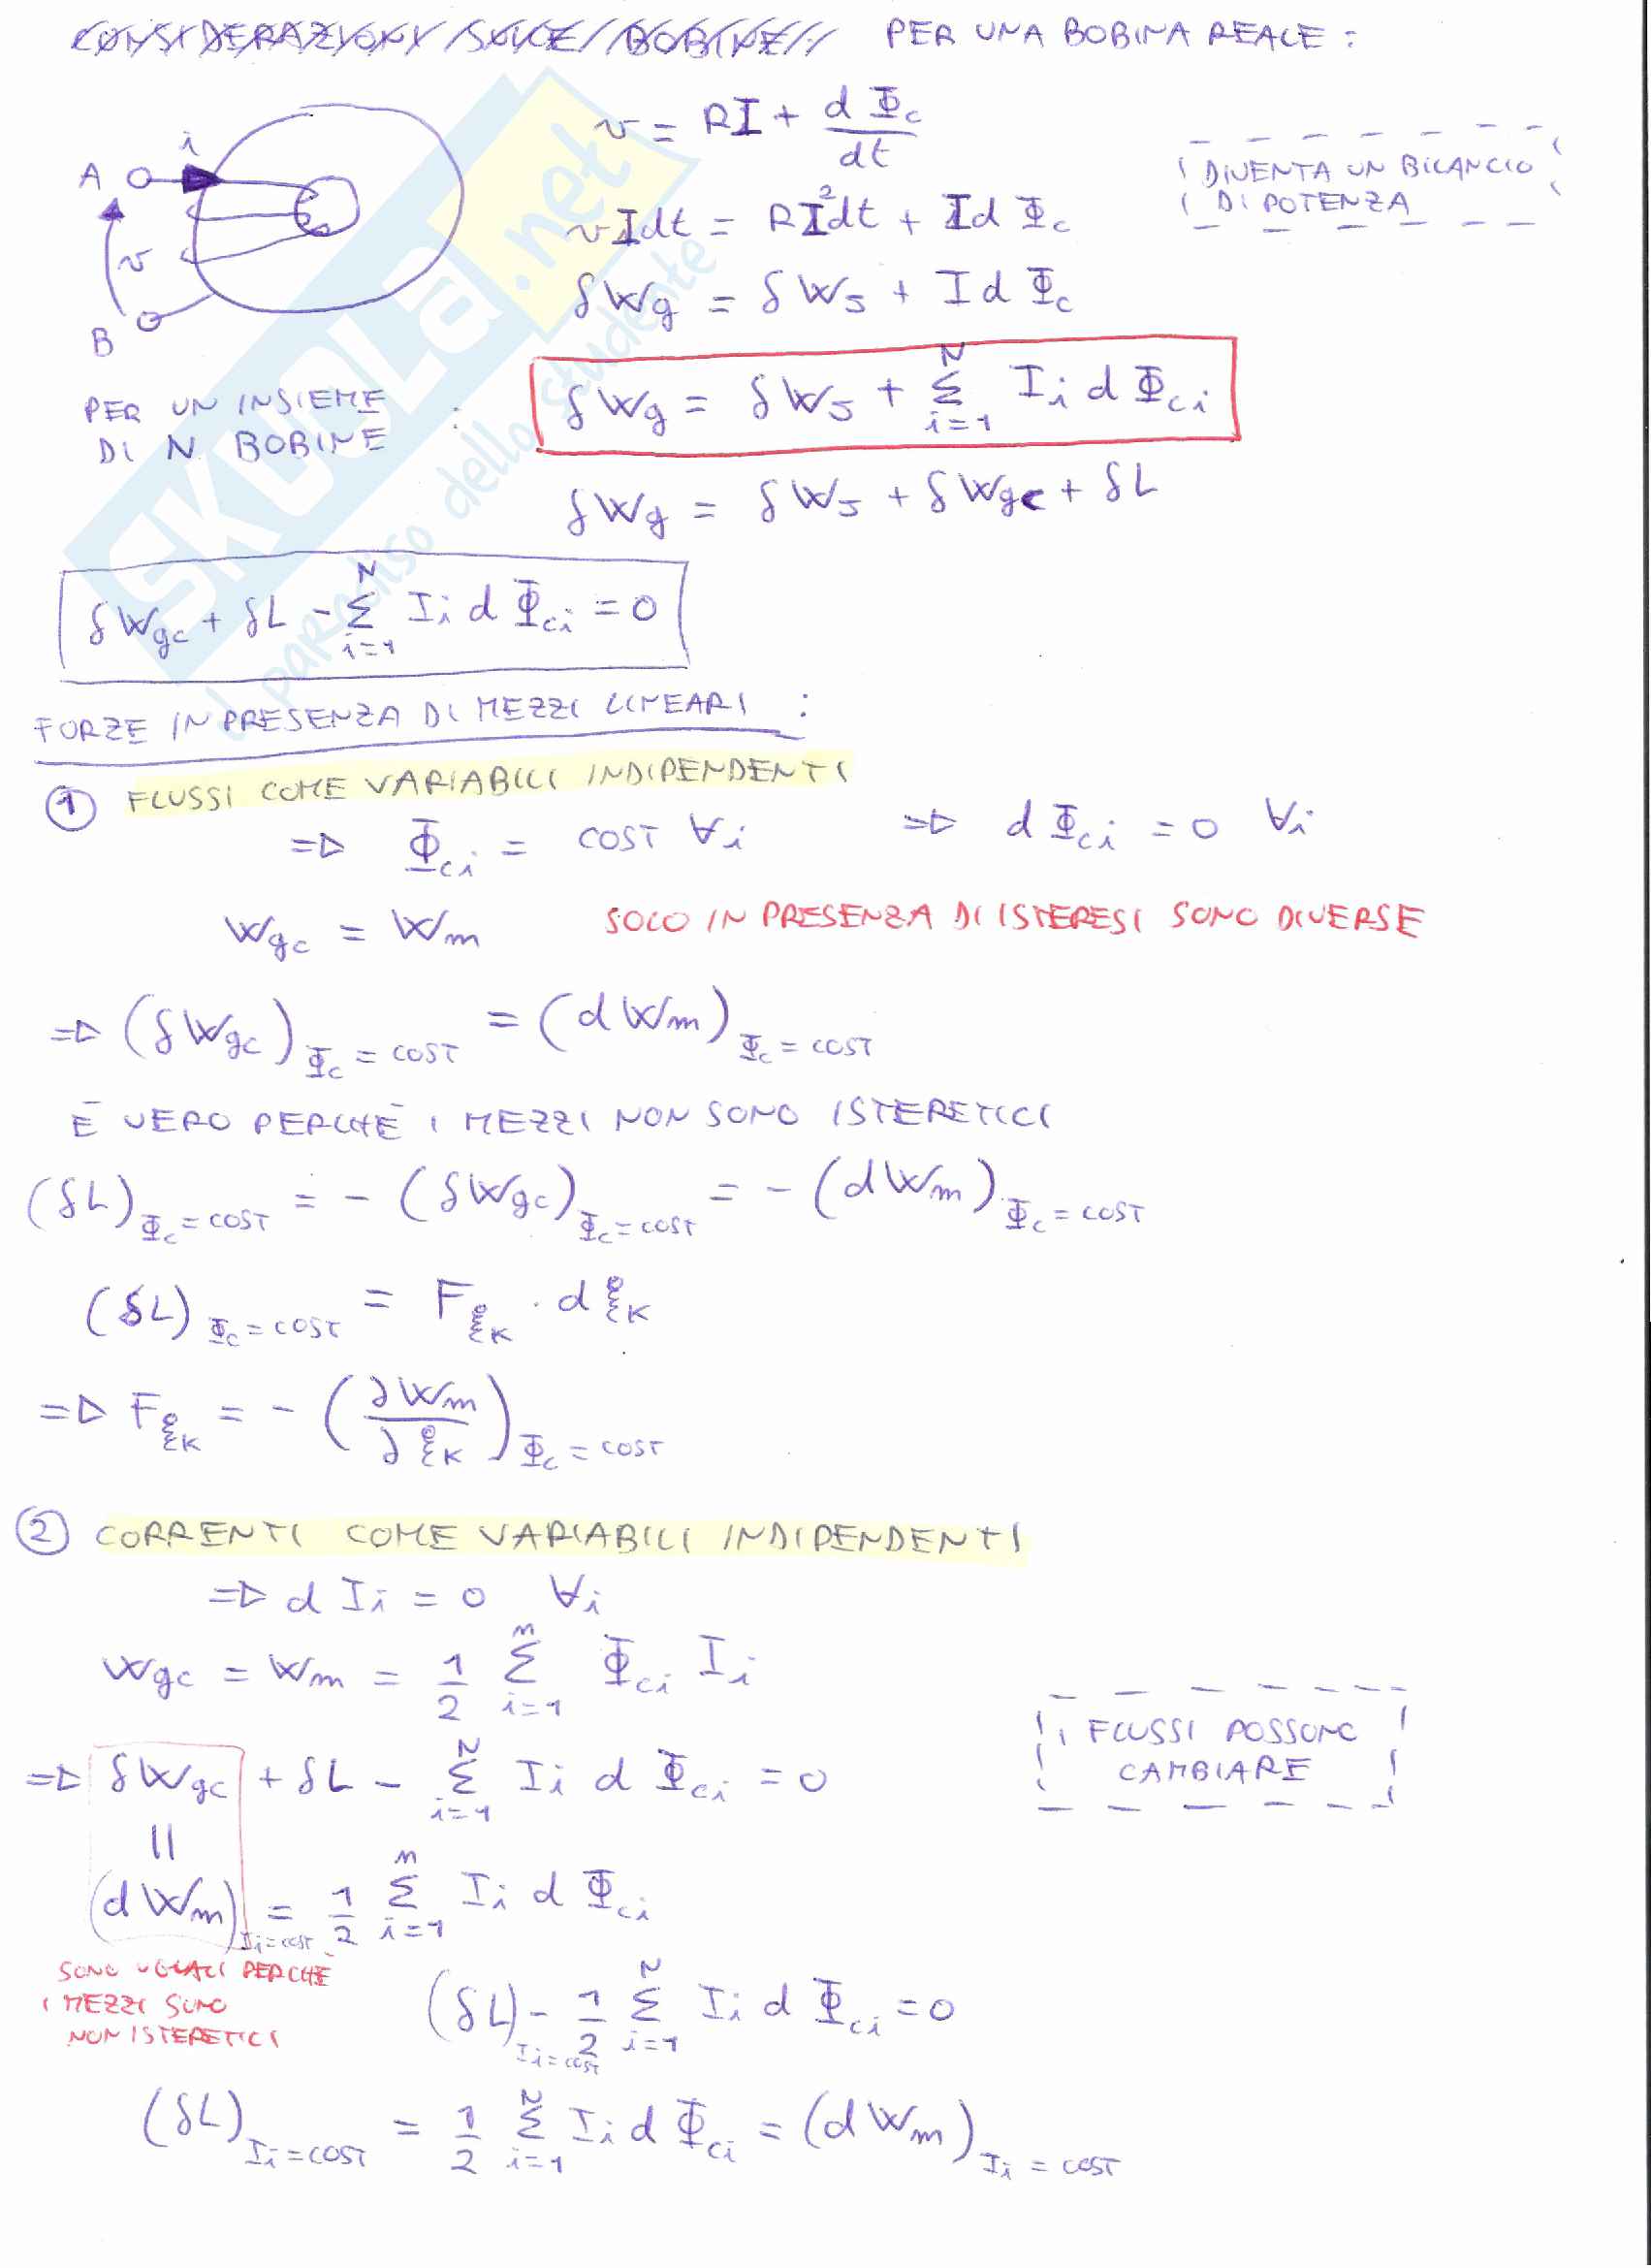 CONSIDERAZIONI SULLE BOBINE: PER UNA BOBINA REALE:
v = RI + dΦc/dt
i
A
v
B
DIVENTA UN BILANCIO
DI POTENZA
vIdt = RI²dt + IdΦc
δWg = δWJ + IdΦc
PER UN INSIEME
DI N BOBINE :
δWg = δWJ + Σ_{i=1}^{N} Ii dΦci
δWg = δWJ + δWgc + δL
δWgc + δL - Σ_{i=1}^{N} Ii dΦci = 0
FORZE IN PRESENZA DI MEZZI LINEARI :
① FLUSSI COME VARIABILI INDIPENDENTI
=> Φci = COST ∀i => dΦci = 0 ∀i
Wgc = Wm SOLO IN PRESENZA DI ISTERESI SONO DIVERSE
=> (δWgc)Φc = COST = (dWm)Φc = COST
È VERO PERCHÈ I MEZZI NON SONO ISTERETICI
(δL)Φc = COST = - (δWgc)Φc = COST = - (dWm)Φc = COST
(δL)Φc = COST = Fξk · dξk
=> Fξk = - (∂Wm/∂ξk)Φc = COST
② CORRENTI COME VARIABILI INDIPENDENTI
=> dIi = 0 ∀i
Wgc = Wm = 1/2 Σ_{i=1}^{m} Φci Ii
I FLUSSI POSSONO
CAMBIARE
=> δWgc + δL - Σ_{i=1}^{N} Ii dΦci = 0
||
(dWm)Ii = cost = 1/2 Σ_{i=1}^{m} Ii dΦci
SONO UGUALI PERCHÈ
I MEZZI SONO
NON ISTERETICI
(δL)Ii = cost - 1/2 Σ_{i=1}^{N} Ii dΦci = 0
(δL)Ii = COST = 1/2 Σ_{i=1}^{N} Ii dΦci = (dWm)Ii = COST
SKUOLA.net
il paradiso dello studente